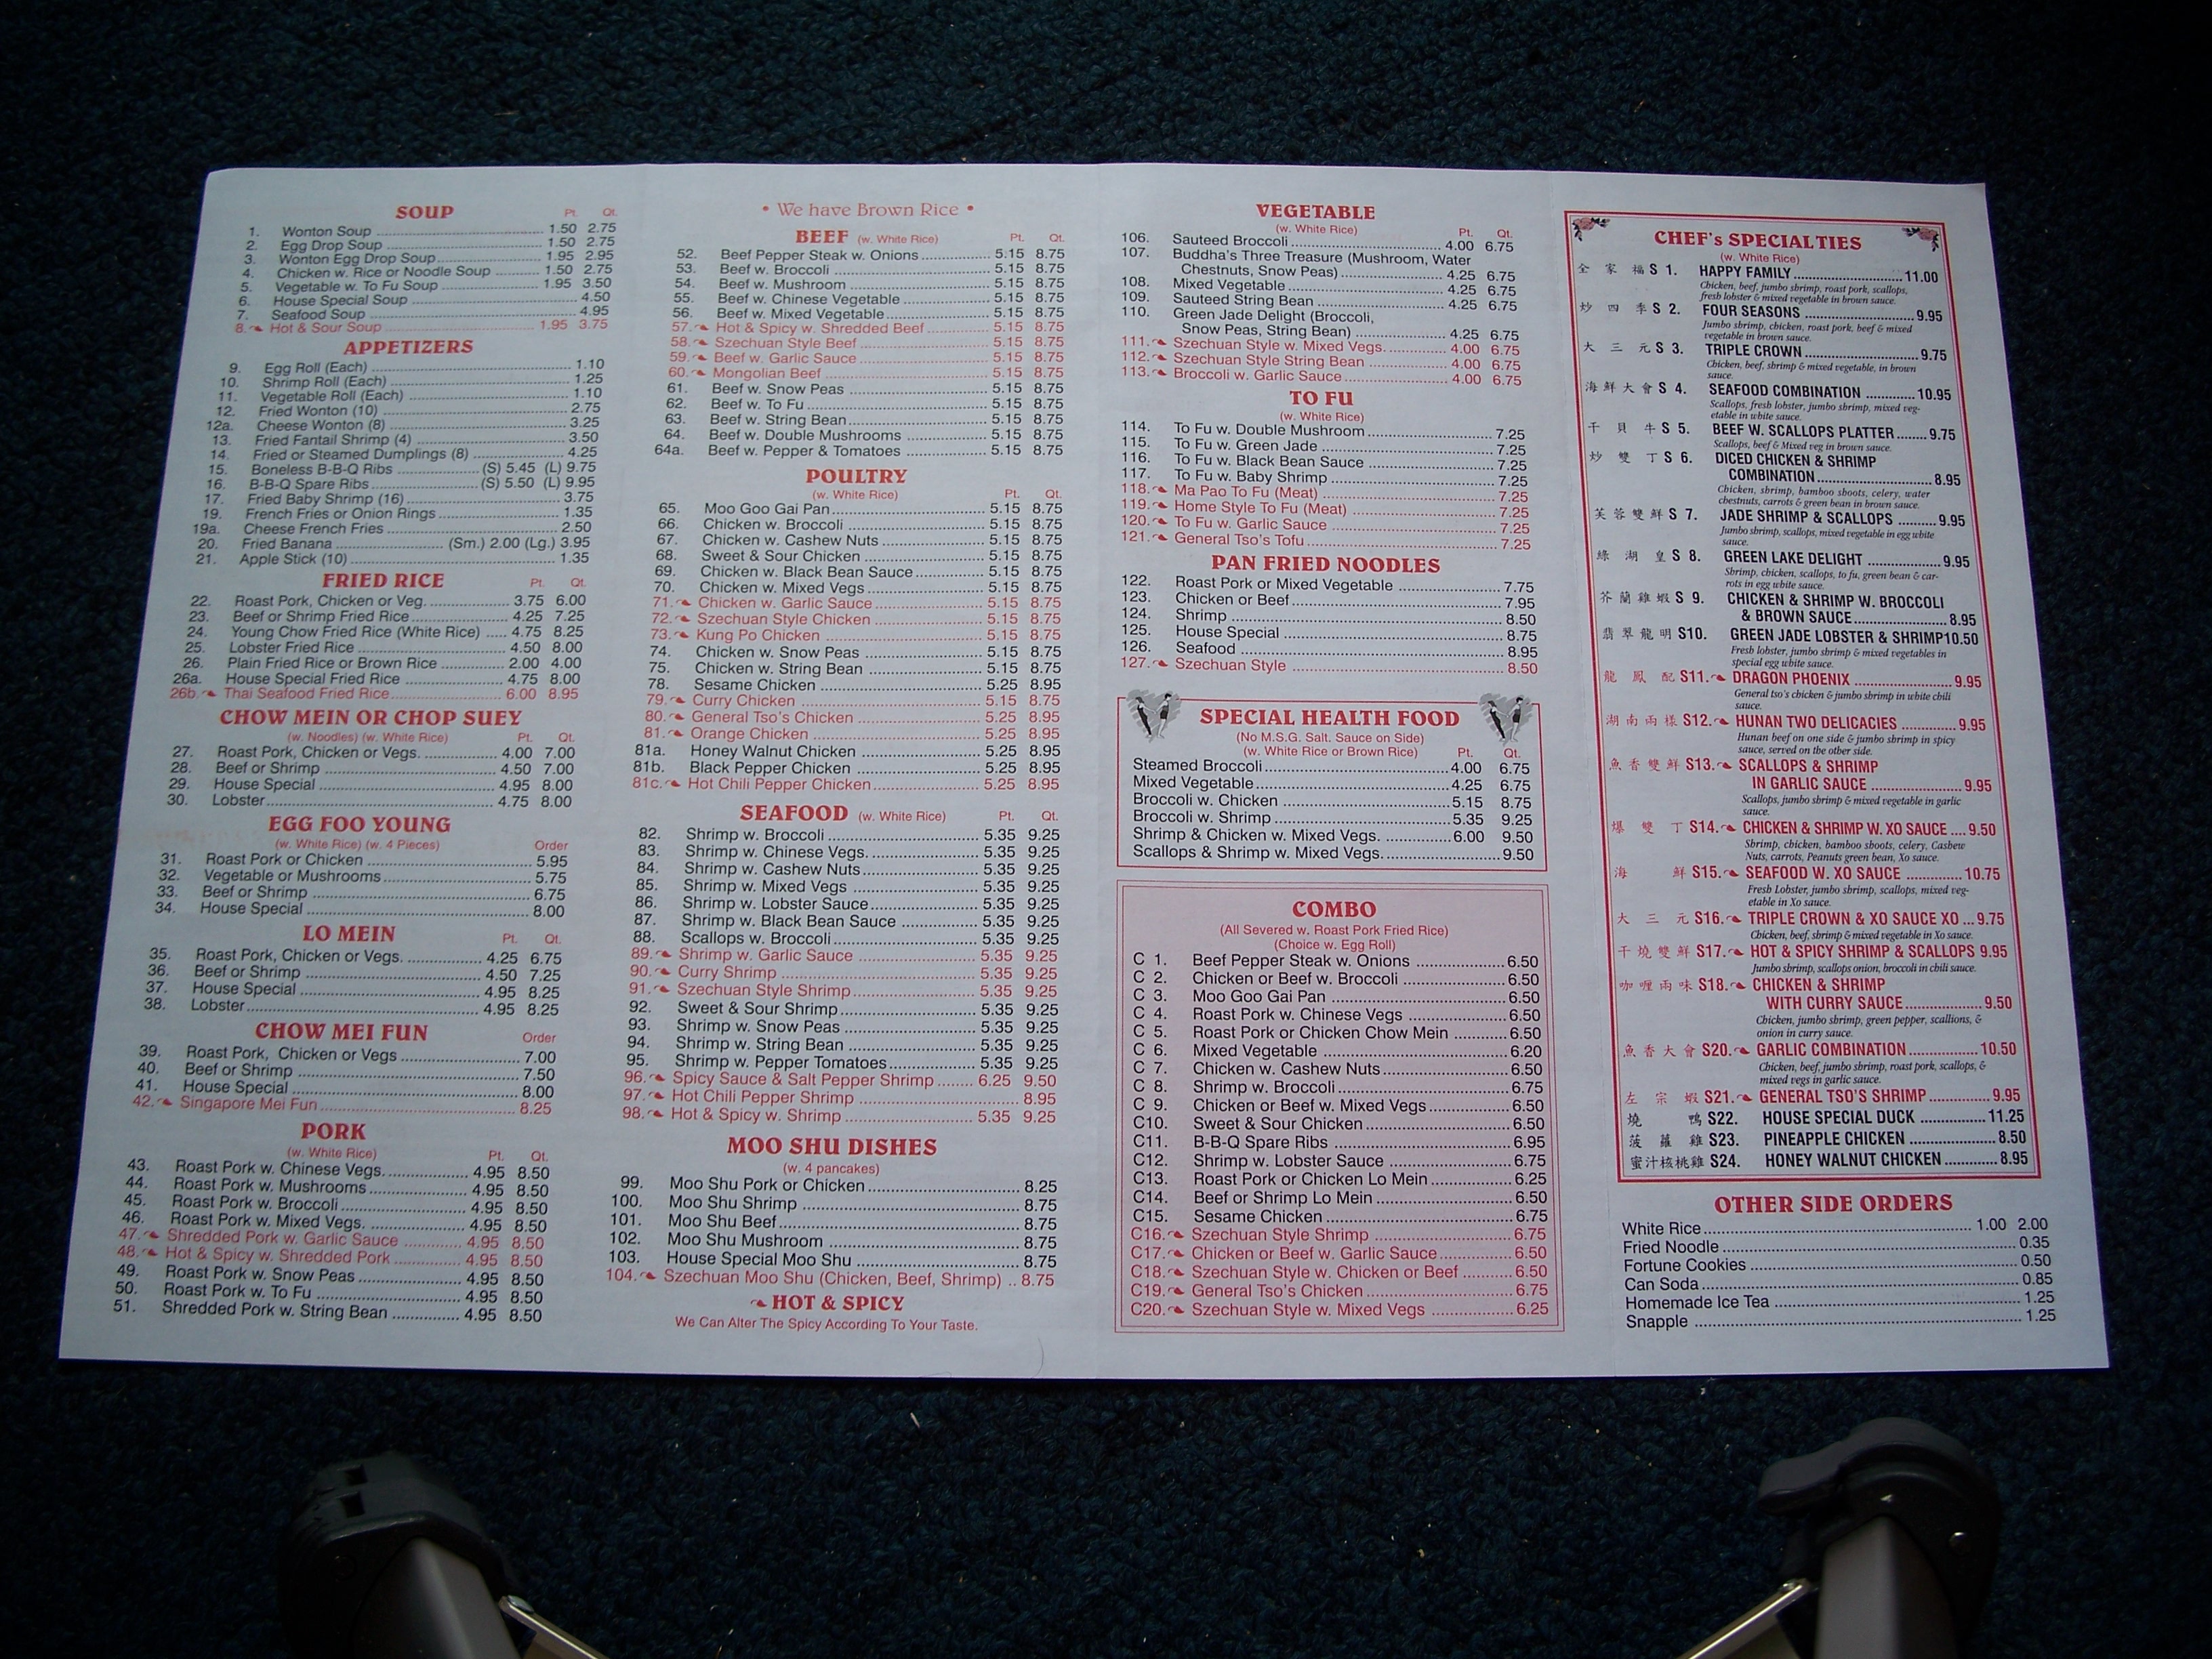 SOUP Pt. Qt.
1. Wonton Soup 1.50 2.75
2. Egg Drop Soup 1.50 2.75
3. Wonton Egg Drop Soup 1.95 2.95
4. Chicken w. Rice or Noodle Soup 1.50 2.75
5. Vegetable w. To Fu Soup 1.95 3.50
6. House Special Soup 4.50
7. Seafood Soup 4.95
8. Hot & Sour Soup 1.95 3.75
APPETIZERS
9. Egg Roll (Each) 1.10
10. Shrimp Roll (Each) 1.25
11. Vegetable Roll (Each) 1.10
12. Fried Wonton (10) 2.75
12a. Cheese Wonton (8) 3.25
13. Fried Fantail Shrimp (4) 3.50
14. Fried or Steamed Dumplings (8) 4.25
15. Boneless B-B-Q Ribs (S) 5.45 (L) 9.75
16. B-B-Q Spare Ribs (S) 5.50 (L) 9.95
17. Fried Baby Shrimp (16) 3.75
19. French Fries or Onion Rings 1.35
19a. Cheese French Fries 2.50
20. Fried Banana (Sm.) 2.00 (Lg.) 3.95
21. Apple Stick (10) 1.35
FRIED RICE Pt. Qt.
22. Roast Pork, Chicken or Veg. 3.75 6.00
23. Beef or Shrimp Fried Rice 4.25 7.25
24. Young Chow Fried Rice (White Rice) 4.75 8.25
25. Lobster Fried Rice 4.50 8.00
26. Plain Fried Rice or Brown Rice 2.00 4.00
26a. House Special Fried Rice 4.75 8.00
26b. Thai Seafood Fried Rice 6.00 8.95
CHOW MEIN OR CHOP SUEY
(w. Noodles) (w. White Rice) Pt. Qt.
27. Roast Pork, Chicken or Vegs. 4.00 7.00
28. Beef or Shrimp 4.50 7.00
29. House Special 4.95 8.00
30. Lobster 4.75 8.00
EGG FOO YOUNG
(w. White Rice) (w. 4 Pieces) Order
31. Roast Pork or Chicken 5.95
32. Vegetable or Mushrooms 5.75
33. Beef or Shrimp 6.75
34. House Special 8.00
LO MEIN Pt. Qt.
35. Roast Pork, Chicken or Vegs. 4.25 6.75
36. Beef or Shrimp 4.50 7.25
37. House Special 4.95 8.25
38. Lobster 4.95 8.25
CHOW MEI FUN Order
39. Roast Pork, Chicken or Vegs 7.00
40. Beef or Shrimp 7.50
41. House Special 8.00
42. Singapore Mei Fun 8.25
PORK
(w. White Rice) Pt. Qt.
43. Roast Pork w. Chinese Vegs. 4.95 8.50
44. Roast Pork w. Mushrooms 4.95 8.50
45. Roast Pork w. Broccoli 4.95 8.50
46. Roast Pork w. Mixed Vegs. 4.95 8.50
47. Shredded Pork w. Garlic Sauce 4.95 8.50
48. Hot & Spicy w. Shredded Pork 4.95 8.50
49. Roast Pork w. Snow Peas 4.95 8.50
50. Roast Pork w. To Fu 4.95 8.50
51. Shredded Pork w. String Bean 4.95 8.50
• We have Brown Rice •
BEEF (w. White Rice) Pt. Qt.
52. Beef Pepper Steak w. Onions 5.15 8.75
53. Beef w. Broccoli 5.15 8.75
54. Beef w. Mushroom 5.15 8.75
55. Beef w. Chinese Vegetable 5.15 8.75
56. Beef w. Mixed Vegetable 5.15 8.75
57. Hot & Spicy w. Shredded Beef 5.15 8.75
58. Szechuan Style Beef 5.15 8.75
59. Beef w. Garlic Sauce 5.15 8.75
60. Mongolian Beef 5.15 8.75
61. Beef w. Snow Peas 5.15 8.75
62. Beef w. To Fu 5.15 8.75
63. Beef w. String Bean 5.15 8.75
64. Beef w. Double Mushrooms 5.15 8.75
64a. Beef w. Pepper & Tomatoes 5.15 8.75
POULTRY
(w. White Rice) Pt. Qt.
65. Moo Goo Gai Pan 5.15 8.75
66. Chicken w. Broccoli 5.15 8.75
67. Chicken w. Cashew Nuts 5.15 8.75
68. Sweet & Sour Chicken 5.15 8.75
69. Chicken w. Black Bean Sauce 5.15 8.75
70. Chicken w. Mixed Vegs 5.15 8.75
71. Chicken w. Garlic Sauce 5.15 8.75
72. Szechuan Style Chicken 5.15 8.75
73. Kung Po Chicken 5.15 8.75
74. Chicken w. Snow Peas 5.15 8.75
75. Chicken w. String Bean 5.15 8.75
78. Sesame Chicken 5.25 8.95
79. Curry Chicken 5.15 8.75
80. General Tso's Chicken 5.25 8.95
81. Orange Chicken 5.25 8.95
81a. Honey Walnut Chicken 5.25 8.95
81b. Black Pepper Chicken 5.25 8.95
81c. Hot Chili Pepper Chicken 5.25 8.95
SEAFOOD (w. White Rice) Pt. Qt.
82. Shrimp w. Broccoli 5.35 9.25
83. Shrimp w. Chinese Vegs. 5.35 9.25
84. Shrimp w. Cashew Nuts 5.35 9.25
85. Shrimp w. Mixed Vegs 5.35 9.25
86. Shrimp w. Lobster Sauce 5.35 9.25
87. Shrimp w. Black Bean Sauce 5.35 9.25
88. Scallops w. Broccoli 5.35 9.25
89. Shrimp w. Garlic Sauce 5.35 9.25
90. Curry Shrimp 5.35 9.25
91. Szechuan Style Shrimp 5.35 9.25
92. Sweet & Sour Shrimp 5.35 9.25
93. Shrimp w. Snow Peas 5.35 9.25
94. Shrimp w. String Bean 5.35 9.25
95. Shrimp w. Pepper Tomatoes 5.35 9.25
96. Spicy Sauce & Salt Pepper Shrimp 6.25 9.50
97. Hot Chili Pepper Shrimp 8.95
98. Hot & Spicy w. Shrimp 5.35 9.25
MOO SHU DISHES
(w. 4 pancakes)
99. Moo Shu Pork or Chicken 8.25
100. Moo Shu Shrimp 8.75
101. Moo Shu Beef 8.75
102. Moo Shu Mushroom 8.75
103. House Special Moo Shu 8.75
104. Szechuan Moo Shu (Chicken, Beef, Shrimp) 8.75
HOT & SPICY
We Can Alter The Spicy According To Your Taste.
VEGETABLE
(w. White Rice) Pt. Qt.
106. Sauteed Broccoli 4.00 6.75
107. Buddha's Three Treasure (Mushroom, Water
Chestnuts, Snow Peas) 4.25 6.75
108. Mixed Vegetable 4.25 6.75
109. Sauteed String Bean 4.25 6.75
110. Green Jade Delight (Broccoli,
Snow Peas, String Bean) 4.25 6.75
111. Szechuan Style w. Mixed Vegs. 4.00 6.75
112. Szechuan Style String Bean 4.00 6.75
113. Broccoli w. Garlic Sauce 4.00 6.75
TO FU
(w. White Rice)
114. To Fu w. Double Mushroom 7.25
115. To Fu w. Green Jade 7.25
116. To Fu w. Black Bean Sauce 7.25
117. To Fu w. Baby Shrimp 7.25
118. Ma Pao To Fu (Meat) 7.25
119. Home Style To Fu (Meat) 7.25
120. To Fu w. Garlic Sauce 7.25
121. General Tso's Tofu 7.25
PAN FRIED NOODLES
122. Roast Pork or Mixed Vegetable 7.75
123. Chicken or Beef 7.95
124. Shrimp 8.50
125. House Special 8.75
126. Seafood 8.95
127. Szechuan Style 8.50
SPECIAL HEALTH FOOD
(No M.S.G. Salt. Sauce on Side)
(w. White Rice or Brown Rice) Pt. Qt.
Steamed Broccoli 4.00 6.75
Mixed Vegetable 4.25 6.75
Broccoli w. Chicken 5.15 8.75
Broccoli w. Shrimp 5.35 9.25
Shrimp & Chicken w. Mixed Vegs. 6.00 9.50
Scallops & Shrimp w. Mixed Vegs. 9.50
COMBO
(All Severed w. Roast Pork Fried Rice)
(Choice w. Egg Roll)
C 1. Beef Pepper Steak w. Onions 6.50
C 2. Chicken or Beef w. Broccoli 6.50
C 3. Moo Goo Gai Pan 6.50
C 4. Roast Pork w. Chinese Vegs 6.50
C 5. Roast Pork or Chicken Chow Mein 6.50
C 6. Mixed Vegetable 6.20
C 7. Chicken w. Cashew Nuts 6.50
C 8. Shrimp w. Broccoli 6.75
C 9. Chicken or Beef w. Mixed Vegs 6.50
C10. Sweet & Sour Chicken 6.50
C11. B-B-Q Spare Ribs 6.95
C12. Shrimp w. Lobster Sauce 6.75
C13. Roast Pork or Chicken Lo Mein 6.25
C14. Beef or Shrimp Lo Mein 6.50
C15. Sesame Chicken 6.75
C16. Szechuan Style Shrimp 6.75
C17. Chicken or Beef w. Garlic Sauce 6.50
C18. Szechuan Style w. Chicken or Beef 6.50
C19. General Tso's Chicken 6.75
C20. Szechuan Style w. Mixed Vegs 6.25
CHEF's SPECIALTIES
(w. White Rice)
全家福 S 1. HAPPY FAMILY 11.00
Chicken, beef, jumbo shrimp, roast pork, scallops,
fresh lobster & mixed vegetable in brown sauce.
炒四季 S 2. FOUR SEASONS 9.95
Jumbo shrimp, chicken, roast pork, beef & mixed
vegetable in brown sauce.
大三元 S 3. TRIPLE CROWN 9.75
Chicken, beef, shrimp & mixed vegetable, in brown
sauce.
海鮮大會 S 4. SEAFOOD COMBINATION 10.95
Scallops, fresh lobster, jumbo shrimp, mixed veg-
etable in white sauce.
干貝牛 S 5. BEEF W. SCALLOPS PLATTER 9.75
Scallops, beef & Mixed veg in brown sauce.
炒雙丁 S 6. DICED CHICKEN & SHRIMP
COMBINATION 8.95
Chicken, shrimp, bamboo shoots, celery, water
chestnuts, carrots & green bean in brown sauce.
芙蓉雙鮮 S 7. JADE SHRIMP & SCALLOPS 9.95
Jumbo shrimp, scallops, mixed vegetable in egg white
sauce.
綠湖皇 S 8. GREEN LAKE DELIGHT 9.95
Shrimp, chicken, scallops, to fu, green bean & car-
rots in egg white sauce.
芥蘭雞蝦 S 9. CHICKEN & SHRIMP W. BROCCOLI
& BROWN SAUCE 8.95
翡翠龍明 S10. GREEN JADE LOBSTER & SHRIMP 10.50
Fresh lobster, jumbo shrimp & mixed vegetables in
special egg white sauce.
龍鳳配 S11. DRAGON PHOENIX 9.95
General tso's chicken & jumbo shrimp in white chili
sauce.
湖南兩樣 S12. HUNAN TWO DELICACIES 9.95
Hunan beef on one side & jumbo shrimp in spicy
sauce, served on the other side.
魚香雙鮮 S13. SCALLOPS & SHRIMP
IN GARLIC SAUCE 9.95
Scallops, jumbo shrimp & mixed vegetable in garlic
sauce.
爆雙丁 S14. CHICKEN & SHRIMP W. XO SAUCE 9.50
Shrimp, chicken, bamboo shoots, celery, Cashew
Nuts, carrots, Peanuts green bean, Xo sauce.
海鮮 S15. SEAFOOD W. XO SAUCE 10.75
Fresh Lobster, jumbo shrimp, scallops, mixed veg-
etable in Xo sauce.
大三元 S16. TRIPLE CROWN & XO SAUCE XO 9.75
Chicken, beef, shrimp & mixed vegetable in Xo sauce.
干燒雙鮮 S17. HOT & SPICY SHRIMP & SCALLOPS 9.95
Jumbo shrimp, scallops onion, broccoli in chili sauce.
咖喱兩味 S18. CHICKEN & SHRIMP
WITH CURRY SAUCE 9.50
Chicken, jumbo shrimp, green pepper, scallions, &
onion in curry sauce.
魚香大會 S20. GARLIC COMBINATION 10.50
Chicken, beef, jumbo shrimp, roast pork, scallops, &
mixed vegs in garlic sauce.
左宗蝦 S21. GENERAL TSO'S SHRIMP 9.95
燒鴨 S22. HOUSE SPECIAL DUCK 11.25
菠蘿雞 S23. PINEAPPLE CHICKEN 8.50
蜜汁核桃雞 S24. HONEY WALNUT CHICKEN 8.95
OTHER SIDE ORDERS
White Rice 1.00 2.00
Fried Noodle 0.35
Fortune Cookies 0.50
Can Soda 0.85
Homemade Ice Tea 1.25
Snapple 1.25